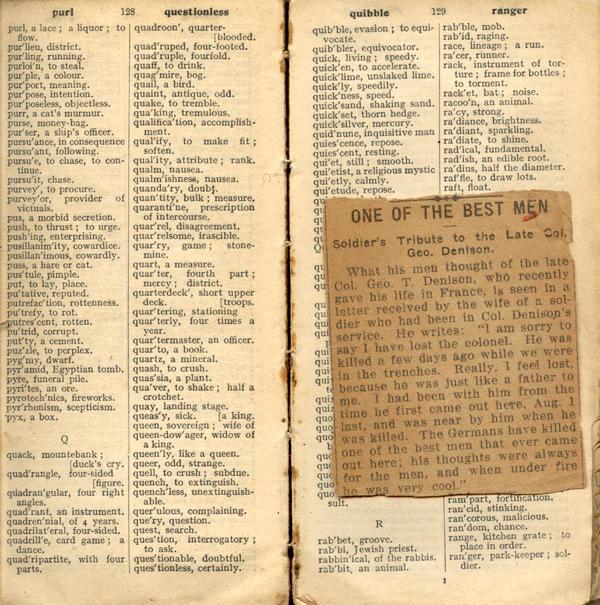 purl 128 questionless
purl, a lace; a liquor; to
flow.
pur'lieu, district.
pur'ling, running.
purloi'n, to steal.
pur'ple, a colour.
pur'port, meaning.
pur'pose, intention.
pur'poseless, objectless.
purr, a cat's murmur.
purse, money-bag.
pur'ser, a ship's officer.
pursu'ance, in consequence
pursu'ant, following.
pursu'e, to chase, to con-
tinue.
pursu'it, chase.
purvey', to procure.
purvey'or, provider of
victuals.
pus, a morbid secretion.
push, to thrust; to urge.
push'ing, enterprising.
pusillanim'ity, cowardice.
pusillan'imous, cowardly.
puss, a hare or cat.
pus'tule, pimple.
put, to lay, place.
pu'tative, reputed.
putrefac'tion, rottenness.
pu'trefy, to rot.
putres'cent, rotten.
pu'trid, corrupt.
put'ty, a cement.
puz'zle, to perplex.
pyg'my, dwarf.
pyr'amid, Egyptian tomb.
pyre, funeral pile.
pyri'tes, an ore.
pyrotech'nics, fireworks.
pyr'rhonism, scepticism.
pyx, a box.
Q
quack, mountebank;
[duck's cry.
quad'rangle, four-sided
[figure.
quadran'gular, four right
angles.
quad'rant, an instrument.
quadren'nial, of 4 years.
quadrilat'eral, four-sided.
quadrill'e, card game; a
dance.
quad'ripartite, with four
parts.
quadroon', quarter-
[blooded.
quad'ruped, four-footed.
quad'ruple, fourfold.
quaff, to drink.
quag'mire, bog.
quail, a bird.
quaint, antique, odd.
quake, to tremble.
qua'king, tremulous.
qualifica'tion, accomplish-
ment.
qual'ify, to make fit;
soften.
qual'ity, attribute; rank.
qualm, nausea.
qualm'ishness, nausea.
quanda'ry, doubt.
quan'tity, bulk; measure.
quaranti'ne, prescription
of intercourse.
quar'rel, disagreement.
quar'relsome, irascible.
quar'ry, game; stone-
mine.
quart, a measure.
quar'ter, fourth part;
mercy; district.
quarterdeck', short upper
deck. [troops.
quar'tering, stationing
quar'terly, four times a
year.
quar'termaster, an officer.
quar'to, a book.
quartz, a mineral.
quash, to crush.
quas'sia, a plant.
qua'ver, to shake; half a
crotchet.
quay, landing stage.
queas'y, sick. [a king.
queen, sovereign; wife of
queen-dow'ager, widow of
a king.
queen'ly, like a queen.
queer, odd, strange.
quell, to crush; subdue.
quench, to extinguish.
quench'less, unextinguish-
able.
quer'ulous, complaining.
que'ry, question.
quest, search.
ques'tion, interrogatory;
to ask.
ques'tionable, doubtful.
ques'tionless, certainly.
quibble 129 ranger
quib'ble, evasion; to equi-
vocate.
quib'bler, equivocator.
quick, living; speedy.
quick'en, to accelerate.
quick'lime, unslaked lime.
quick'ly, speedily.
quick'ness, speed.
quick'sand, shaking sand.
quick'set, thorn hedge.
quick'silver, mercury.
quid'nunc, inquisitive man
quies'cence, repose.
quies'cent, resting.
qui'et, still; smooth.
qui'etist, a religious mystic
qui'etly, calmly.
qui'etude, repose.
sult.
R
rab'bet, groove.
rab'bi, Jewish priest.
rabbin'ical, of the rabbis.
rab'bit, an animal.
rab'ble, mob.
rab'id, raging.
race, lineage; a run.
ra'cer, runner.
rack, instrument of tor-
ture; frame for bottles;
to torment.
rack'et, bat; noise.
racoo'n, an animal.
ra'cy, strong.
ra'diance, brightness.
ra'diant, sparkling.
ra'diate, to shine.
rad'ical, fundamental.
rad'ish, an edible root.
ra'dius, half the diameter.
raf'fle, to draw lots.
raft, float.
ONE OF THE BEST MEN
Soldier's Tribute to the Late Col.
Geo. Denison.
What his men thought of the late
Col. Geo. T. Denison, who recently
gave his life in France, is seen in a
letter received by the wife of a sol-
dier who had been in Col. Denison's
service. He writes: "I am sorry to
say I have lost the colonel. He was
killed a few days ago while we were
in the trenches. Really, I feel lost,
because he was just like a father to
me. I had been with him from the
time he first came out here, Aug. 1
last, and was near by him when he
was killed. The Germans have killed
one of the best men that ever came
out here; his thoughts were always
for the men, and when under fire
he was very cool."
ram'part, fortification.
ran'cid, stinking.
ran'corous, malicious.
ran'dom, chance.
range, kitchen grate; to
place in order.
ran'ger, park-keeper; sol-
dier.
I